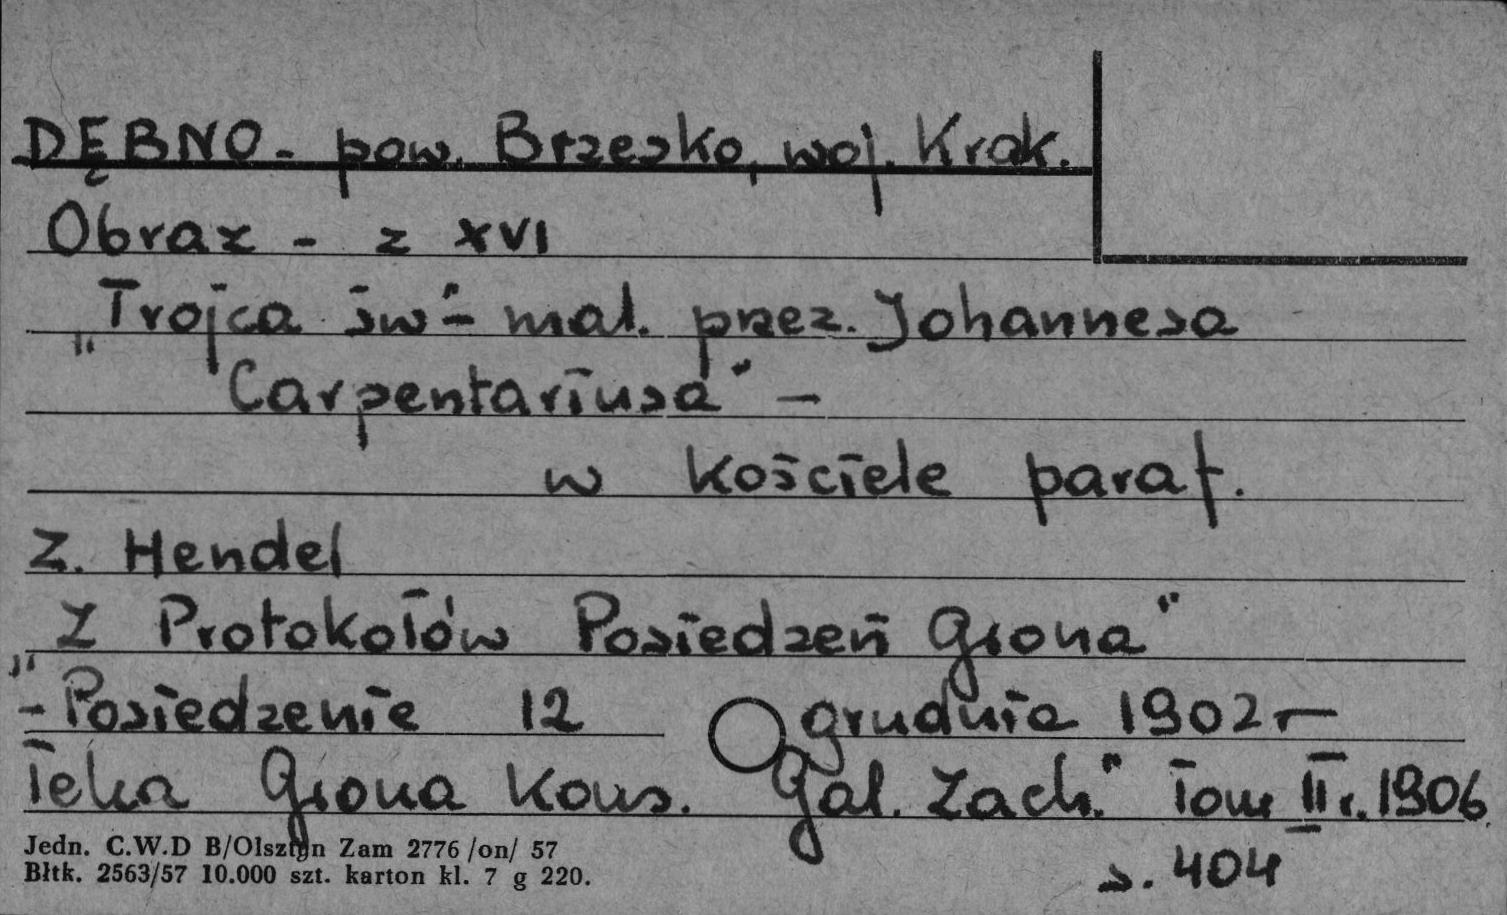 DĘBNO - pow. Brzesko, woj. Krak.
Obraz - z XVI
"Trojca św" - mal. przez. Johannesa
Carpentariusa" -
w kościele paraf.
Z. Hendel
"Z Protokołów Posiedzeń Grona"
- Posiedzenie 12 grudnia 1902 r -
Teka Grona Kons. Gal. Zach." Tom II r. 1906
s. 404
Jedn. C.W.D B/Olsztyn Zam 2776 /on/ 57
Błtk. 2563/57 10.000 szt. karton kl. 7 g 220.